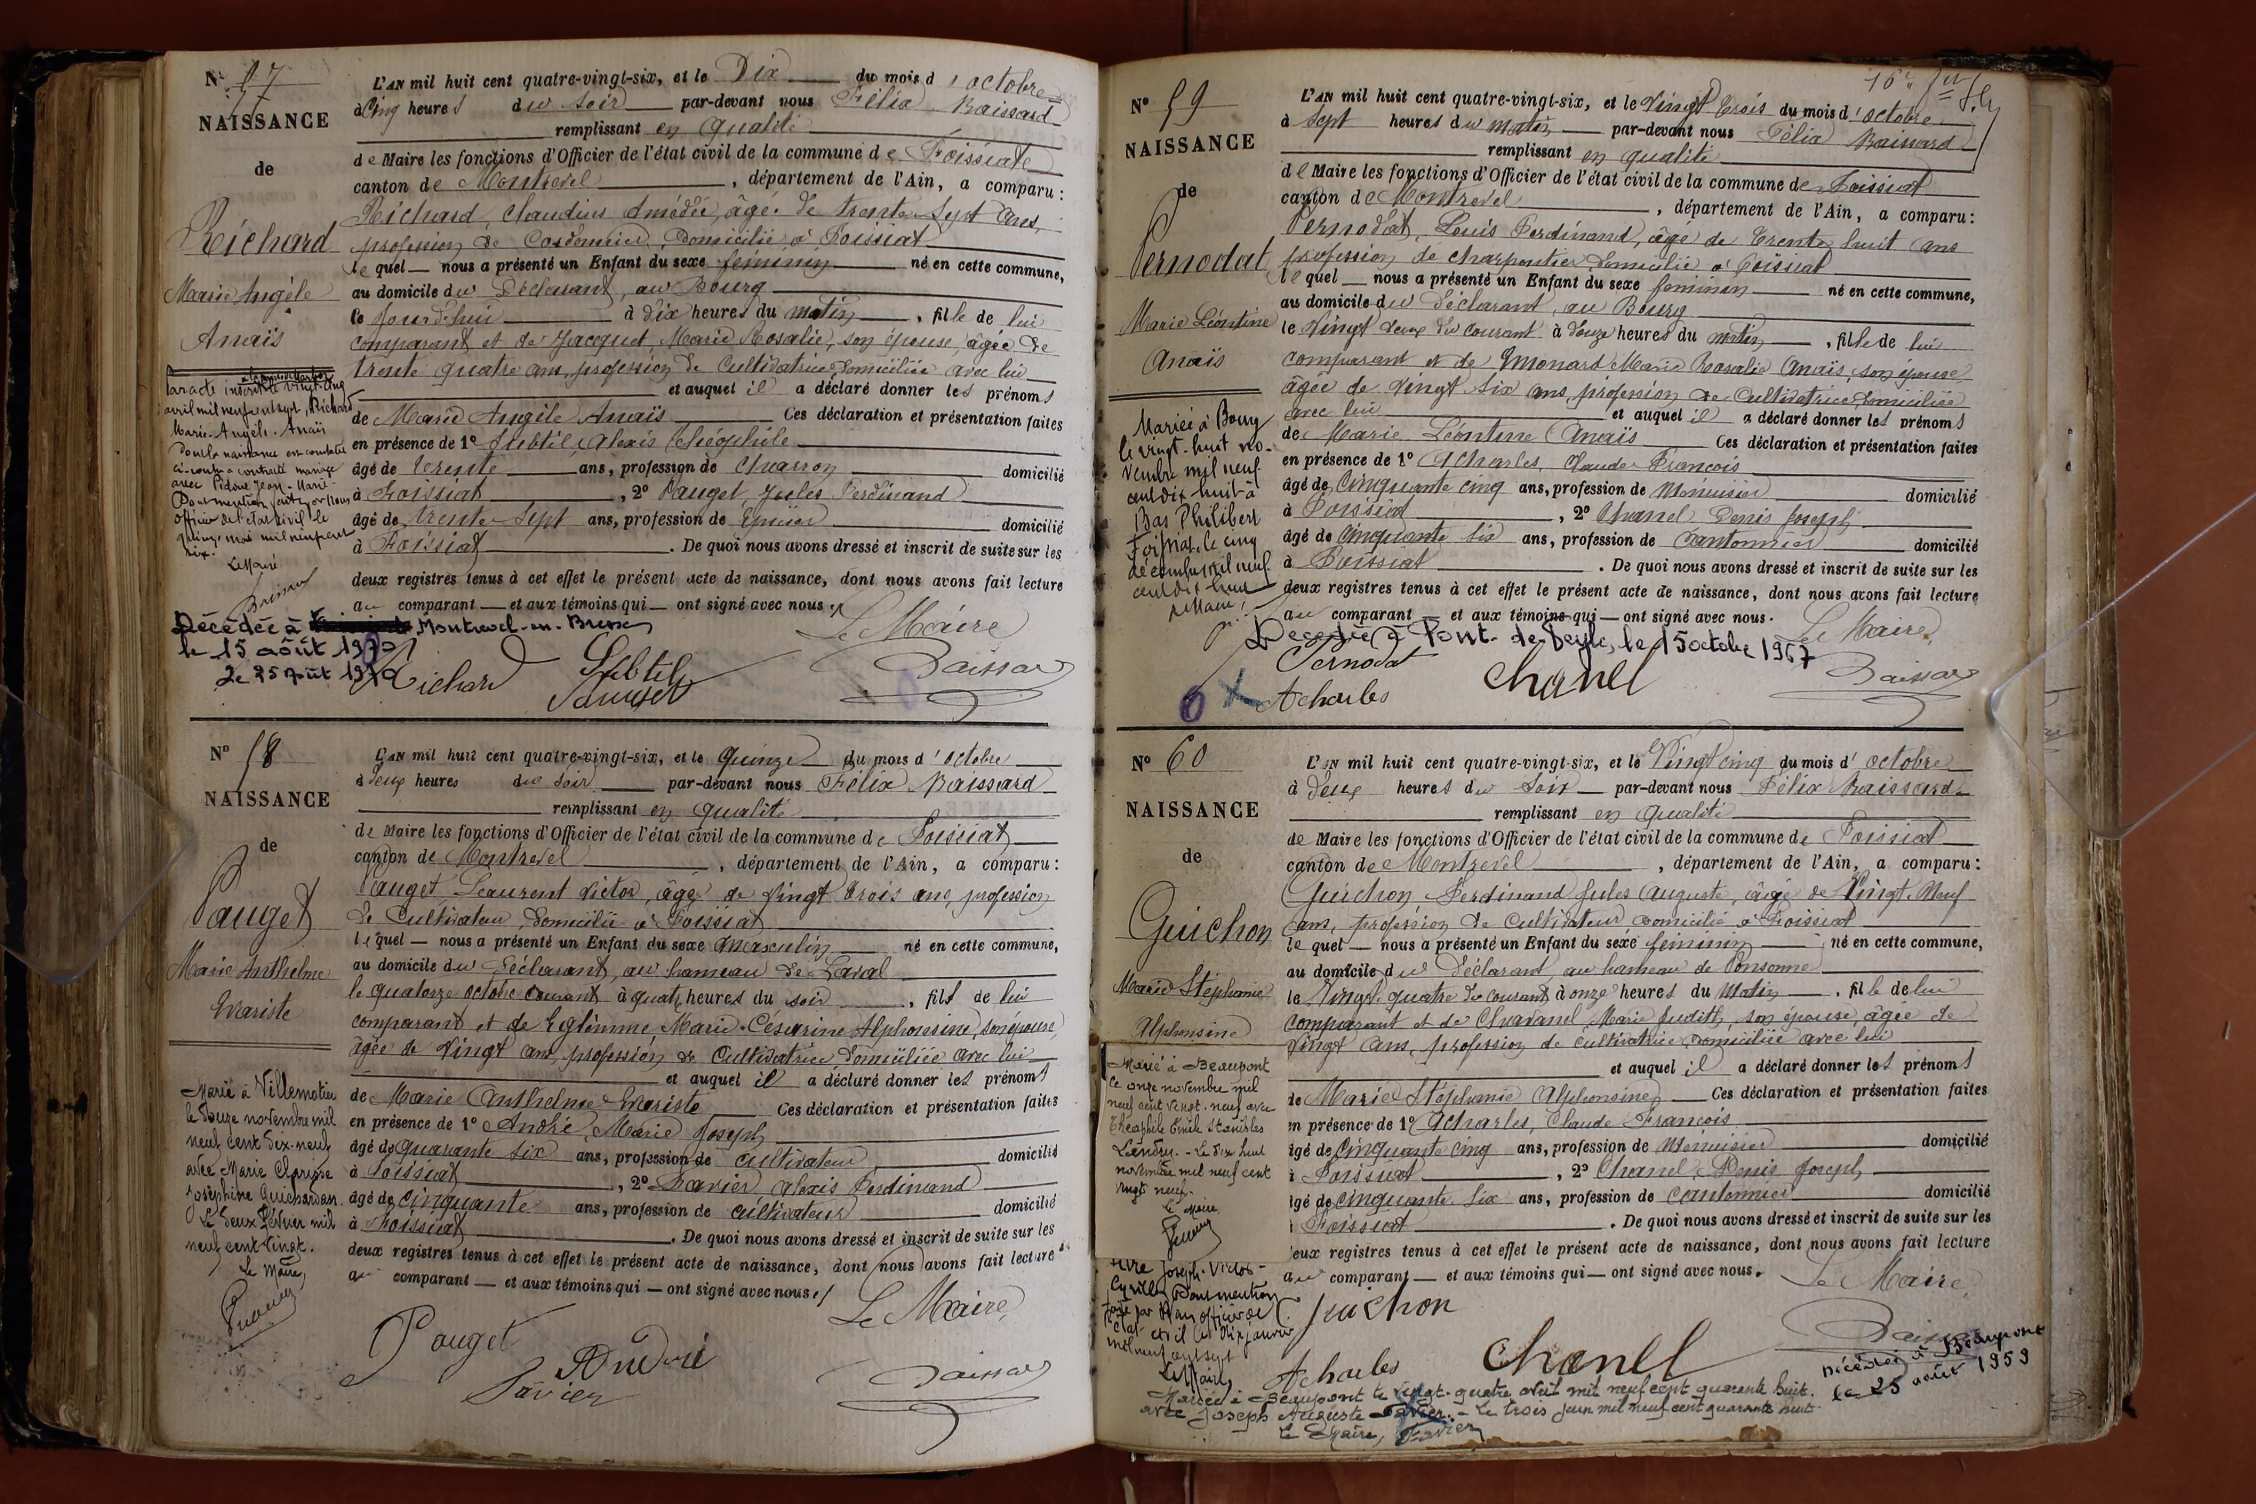 N° 57
NAISSANCE
de
Richard
Marie Angèle
Anaïs
L'AN mil huit cent quatre-vingt-six, et le Dix du mois d'octobre
à Cinq heures du soir par-devant nous Félix Baissard
remplissant en qualité
de Maire les fonctions d'Officier de l'état civil de la commune de Foissiat
canton de Montrevel, département de l'Ain, a comparu:
Richard, Claudius Amédée, âgé de trente sept ans,
profession de Cordonnier, domicilié à Foissiat
lequel nous a présenté un Enfant du sexe féminin né en cette commune,
au domicile du Déclarant, au Bourg
le jourd'hui à dix heures du matin, fille de lui
comparant et de Jacquet, Marie Rosalie, son épouse, âgée de
trente quatre ans, profession de Cultivatrice domiciliée avec lui
et auquel il a déclaré donner les prénoms
de Marie Angèle Anaïs Ces déclaration et présentation faites
en présence de 1° Subtil, Alexis Théophile
âgé de trente ans, profession de Charron domicilié
à Foissiat, 2° Pauget, Jules Ferdinand
âgé de trente-sept ans, profession de Epicier domicilié
à Foissiat. De quoi nous avons dressé et inscrit de suite sur les
deux registres tenus à cet effet le présent acte de naissance, dont nous avons fait lecture
au comparant et aux témoins qui ont signé avec nous.
Le Maire
Richard Subtil Baissard
Pauget
Par acte inscrit le vingt-cinq
avril mil neuf cent sept, Richard
Marie-Angèle-Anaïs
dont la naissance est constatée
ci-contre a contracté mariage
avec Pidoux Jean-Marie
Dont mention faite par Nous
officier de l'état civil le
quinze mai mil neuf cent
Le Maire
Décédée à Montrevel-en-Bresse
le 15 août 1970
Le 25 Août 1970
N° 58
NAISSANCE
de
Pauget
Marie Anthelme
Evariste
L'AN mil huit cent quatre-vingt-six, et le Quinze du mois d'octobre
à deux heures du soir par-devant nous Félix Baissard
remplissant en qualité
de Maire les fonctions d'Officier de l'état civil de la commune de Foissiat
canton de Montrevel, département de l'Ain, a comparu:
Pauget, Laurent Victor, âgé de vingt trois ans, profession
de Cultivateur, domicilié à Foissiat
lequel nous a présenté un Enfant du sexe Masculin né en cette commune,
au domicile du Déclarant, au hameau de Laval
le quatorze octobre courant à quatre heures du soir, fils de lui
comparant et de Marie-Césarine Alphonsine, son épouse,
âgée de vingt ans, profession de Cultivatrice domiciliée avec lui
et auquel il a déclaré donner les prénoms
de Marie Anthelme Evariste Ces déclaration et présentation faites
en présence de 1° André, Marie Joseph
âgé de quarante six ans, profession de cultivateur domicilié
à Foissiat, 2° Savier Alexis Ferdinand
âgé de cinquante ans, profession de cultivateur domicilié
à Foissiat. De quoi nous avons dressé et inscrit de suite sur les
deux registres tenus à cet effet le présent acte de naissance, dont nous avons fait lecture
au comparant et aux témoins qui ont signé avec nous.
Le Maire
Pauget André
Savier Baissard
Marié à Villemotier
le douze novembre mil
neuf cent dix-neuf
avec Marie Clarisse
Joséphine Guichardan.
Le deux Février mil
neuf cent vingt.
Le Maire,
N° 59
NAISSANCE
de
Pernodat
Marie Léontine
Anaïs
L'AN mil huit cent quatre-vingt-six, et le Vingt trois du mois d'octobre
à sept heures du matin par-devant nous Félix Baissard
remplissant en qualité
de Maire les fonctions d'Officier de l'état civil de la commune de Foissiat
canton de Montrevel, département de l'Ain, a comparu:
Pernodat, Louis Ferdinand, âgé de trente huit ans
profession de charpentier domicilié à Foissiat
lequel nous a présenté un Enfant du sexe féminin né en cette commune,
au domicile du déclarant, au Bourg
le vingt deux du courant à douze heures du matin, fille de lui
comparant et de Emonard Marie Rosalie Anaïs, son épouse
âgée de vingt six ans, profession de Cultivatrice domiciliée
avec lui et auquel il a déclaré donner les prénoms
de Marie Léontine Anaïs Ces déclaration et présentation faites
en présence de 1° Acharles, Claude François
âgé de Cinquante cinq ans, profession de Menuisier domicilié
à Foissiat, 2° Chanel Denis Joseph
âgé de Cinquante six ans, profession de Cantonnier domicilié
à Foissiat. De quoi nous avons dressé et inscrit de suite sur les
deux registres tenus à cet effet le présent acte de naissance, dont nous avons fait lecture
au comparant et aux témoins qui ont signé avec nous.
Le Maire
Décédée à Pont-de-Veyle, le 15 octobre 1967
Pernodat Chanel Baissard
Acharles
Mariée à Bourg
le vingt-huit no-
vembre mil neuf
cent dix-huit à
Bas Philibert
Foissiat, le cinq
décembre mil neuf
cent dix huit
Le Maire,
N° 60
NAISSANCE
de
Guichon
Marie Stéphanie
Alphonsine
L'AN mil huit cent quatre-vingt-six, et le Vingt cinq du mois d'octobre
à deux heures du soir par-devant nous Félix Baissard
remplissant en qualité
de Maire les fonctions d'Officier de l'état civil de la commune de Foissiat
canton de Montrevel, département de l'Ain, a comparu:
Guichon, Ferdinand Jules Auguste, âgé de Vingt Neuf
ans, profession de Cultivateur domicilié à Foissiat
lequel nous a présenté un Enfant du sexe féminin né en cette commune,
au domicile du Déclarant, au hameau de Ponsonne
le Vingt quatre du courant à onze heures du Matin, fille de lui
comparant et de Chavanel, Marie Judith, son épouse, âgée de
vingt ans, profession de cultivatrice domiciliée avec lui
et auquel il a déclaré donner les prénoms
de Marie Stéphanie Alphonsine Ces déclaration et présentation faites
en présence de 1° Acharles, Claude François
âgé de Cinquante cinq ans, profession de Menuisier domicilié
à Foissiat, 2° Chanel Denis Joseph
âgé de cinquante six ans, profession de Cantonnier domicilié
à Foissiat. De quoi nous avons dressé et inscrit de suite sur les
deux registres tenus à cet effet le présent acte de naissance, dont nous avons fait lecture
au comparant et aux témoins qui ont signé avec nous.
Le Maire
Guichon
Acharles Chanel Baissard
Décédée à Beaupont
le 25 août 1959
Marié à Beaupont
le onze novembre mil
neuf cent vingt-neuf avec
Théophile Emile Stanislas
Landry. - Le dix huit
novembre mil neuf cent
vingt neuf.
Le Maire
Joseph-Victor-
Cyrille Dont mention
faite par Nous officier de
état civil le dix janvier
mil neuf cent sept
Le Maire
Mariée à Beaupont le vingt-quatre avril mil neuf cent quarante huit
avec Joseph Auguste Favier. - Le trois juin mil neuf cent quarante huit
Le Maire, Favier